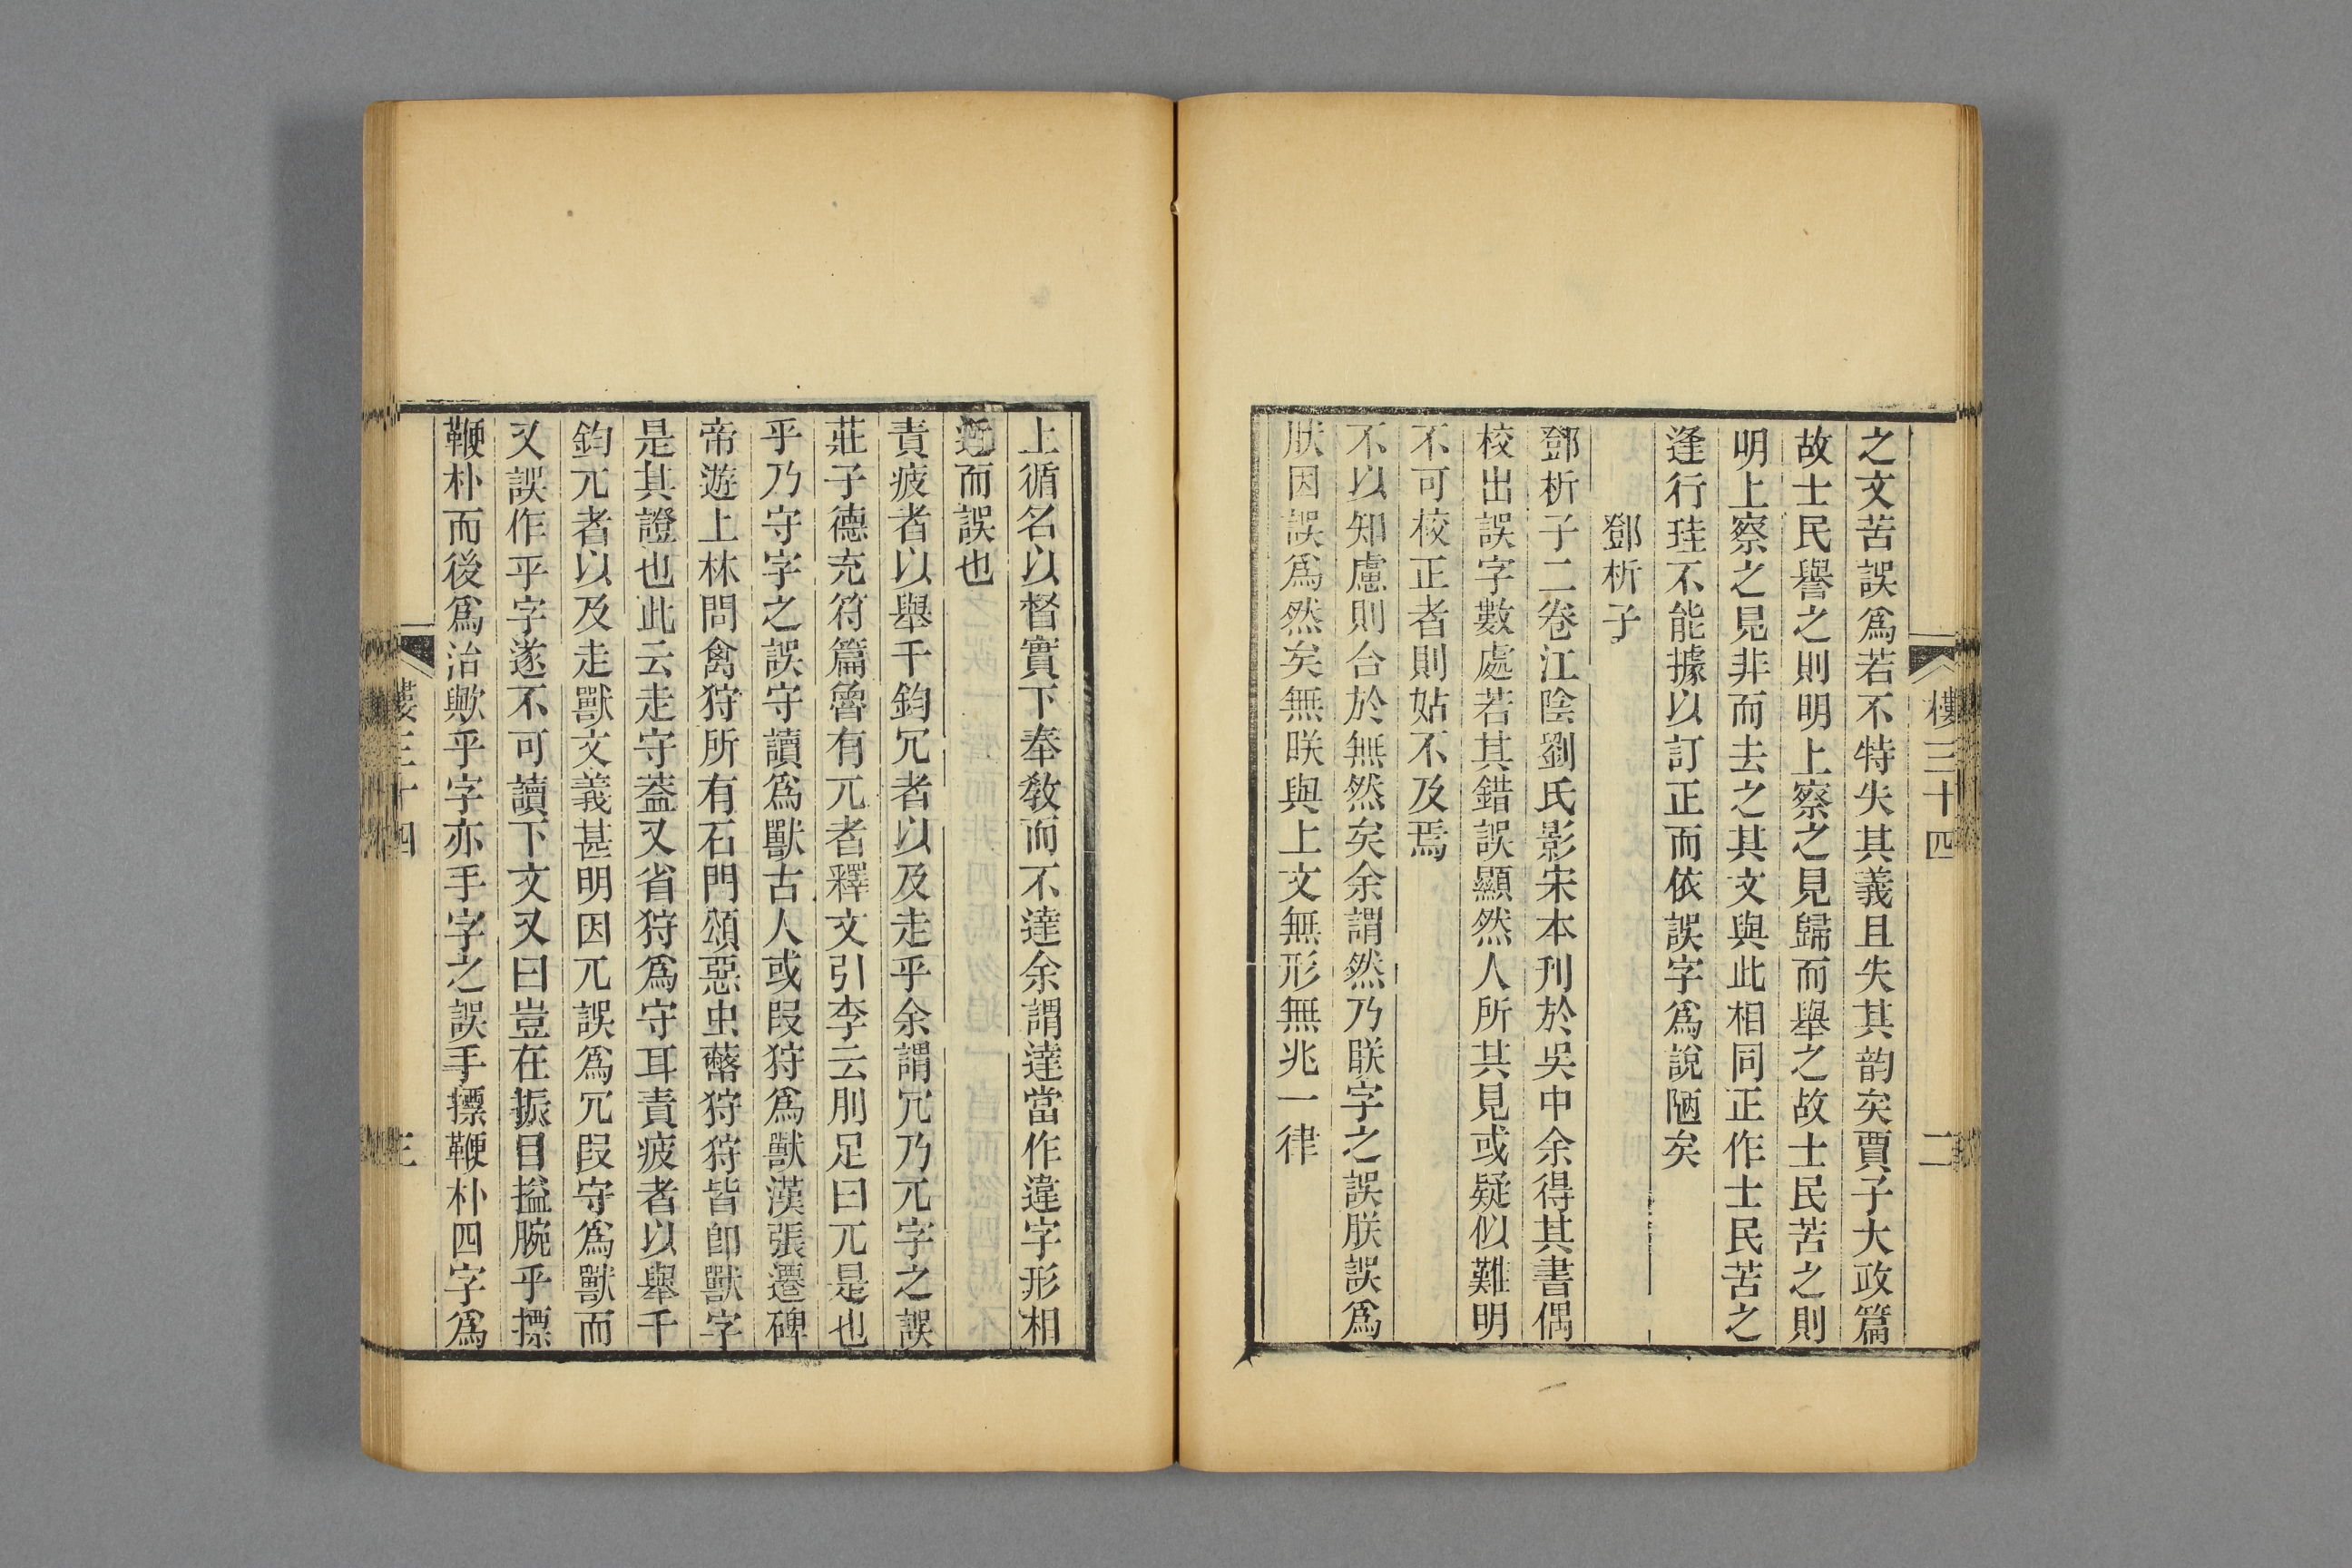 樓三十四
二
之文苦誤爲若不特失其義且失其韵矣賈子大政篇
故士民譽之則明上察之見歸而舉之故士民苦之則
明上察之見非而去之其文與此相同正作士民苦之
逢行珪不能據以訂正而依誤字爲說陋矣
鄧析子
鄧析子二卷江陰劉氏影宋本刊於吳中余得其書偶
校出誤字數處若其錯誤顯然人所共見或疑似難明
不可校正者則姑不及焉
不以知慮則合於無然矣余謂然乃眹字之誤朕誤爲
肰因誤爲然矣無眹與上文無形無兆一律
上循名以督實下奉教而不達余謂達當作違字形相
近而誤也
責疲者以舉千鈞冗者以及走乎余謂冗乃兀字之誤
莊子德充符篇魯有兀者釋文引李云刖足曰兀是也
乎乃守字之誤守讀爲獸古人或叚狩爲獸漢張遷碑
帝遊上林問禽狩所有石門頌惡虫蔽狩狩皆卽獸字
是其證也此云走守葢又省狩爲守耳責疲者以舉千
鈞兀者以及走獸文義甚明因兀誤爲冗叚守爲獸而
又誤作乎字遂不可讀下文又曰豈在振目搤腕乎摽
鞭朴而後爲治歟乎字亦手字之誤手摽鞭朴四字爲
樓三十四
三